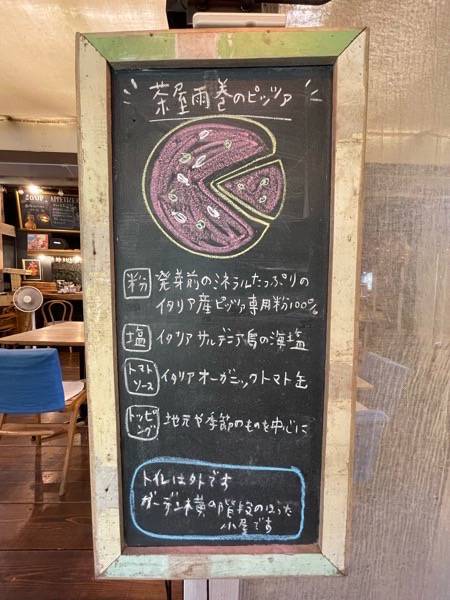 茶屋雨巻のピッツァ
粉 発芽前のミネラルたっぷりの
イタリア産ピッツァ専用粉100%
塩 イタリアサルデニア島の海塩
トマトソース イタリアオーガニックトマト缶
トッピング 地元や季節のものを中心に
トイレは外です
ガーデン横の階段のぼった
小屋です